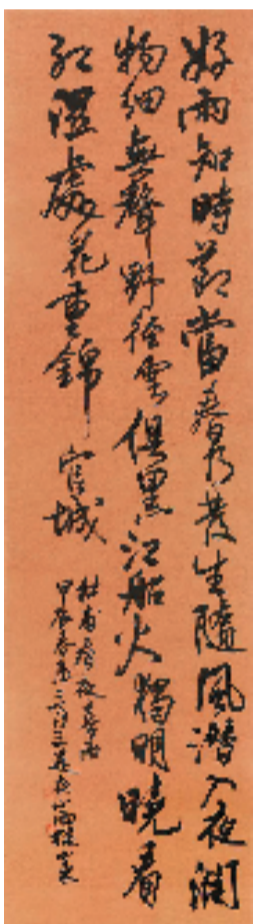 好雨知時節當春乃發生隨風潛入夜潤
物細無聲野徑雲俱黑江船火獨明曉看
紅濕處花重錦官城
杜甫春夜喜雨
甲辰春